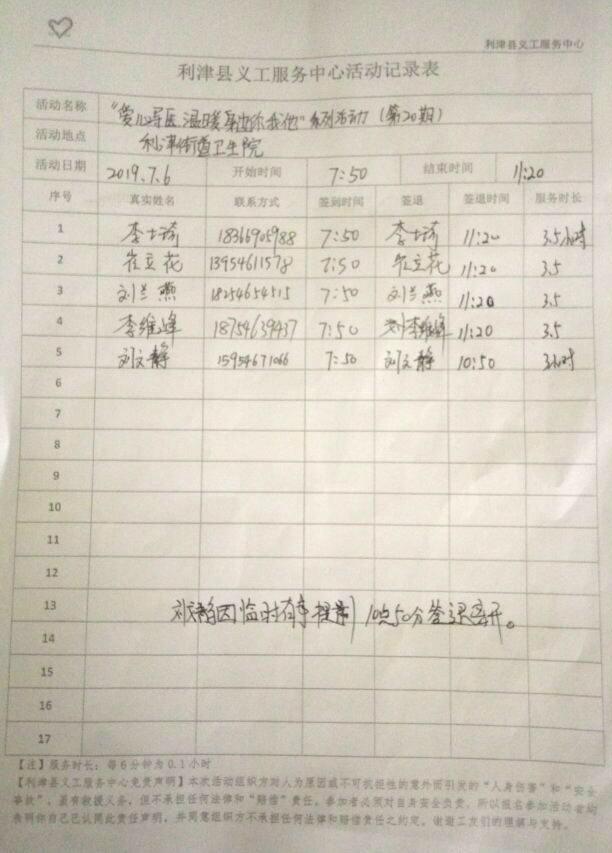 利津县义工服务中心
利津县义工服务中心活动记录表
活动名称 "爱心导医 温暖 你我他"系列活动(第20期)
活动地点 利津街道卫生院
活动日期 2019.7.6 开始时间 7:50 结束时间 11:20
序号 真实姓名 联系方式 签到时间 签退 签退时间 服务时长
1 李士琦 18366905988 7:50 李士琦 11:20 3.5小时
2 崔立花 13954611578 7:50 崔立花 11:20 3.5
3 刘兰燕 18254654515 7:50 刘兰燕 11:20 3.5
4 李维峰 18754639437 7:50 李维峰 11:20 3.5
5 刘文静 15954671066 7:50 刘文静 10:50 3小时
6
7
8
9
10
11
12
13 刘文静因临时有事提前10点50分签退离开。
14
15
16
17
【注】服务时长:每6分钟为0.1小时
【利津县义工服务中心免责声明】本次活动组织方对人为原因或不可抗拒性的意外而引发的"人身伤害"和"安全
事故",虽有救援义务,但不承担任何法律和"赔偿"责任。参加者必须对自身安全负责,所以报名参加活动者均
表明你自己已认同此责任声明,并同意组织方不承担任何法律和赔偿责任之约定。谢谢工友们的理解与支持。